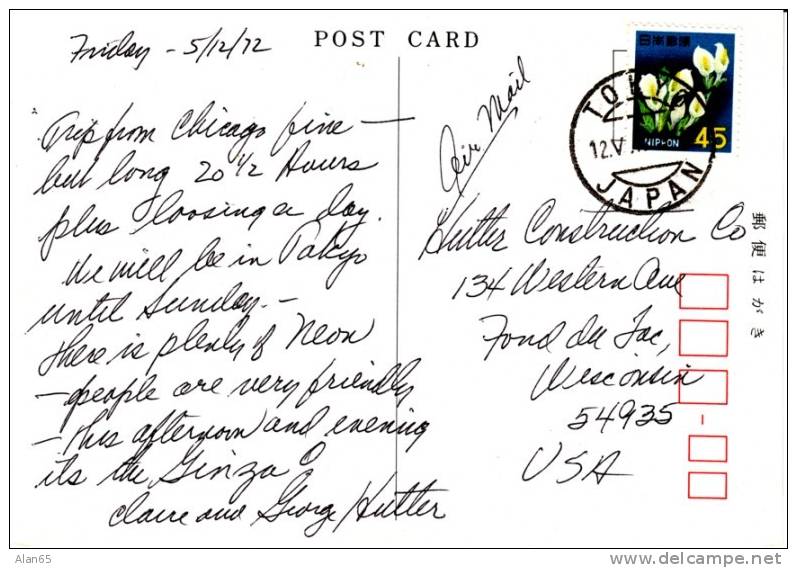 Friday - 5/12/72
POST CARD
Trip from Chicago fine —
but long 20 1/2 Hours
plus loosing a day.
We will be in Tokyo
until Sunday. -
There is plenty of Neon
- people are very friendly
- this afternoon and evening
its the Ginza
Claire and George Hutter
Air Mail
日本郵便
NIPPON
45
12.V
JAPAN
Hutter Construction Co
134 Western Ave
Fond du Lac,
Wisconsin
54935
USA
郵便はがき
Alan65
delcampe.net